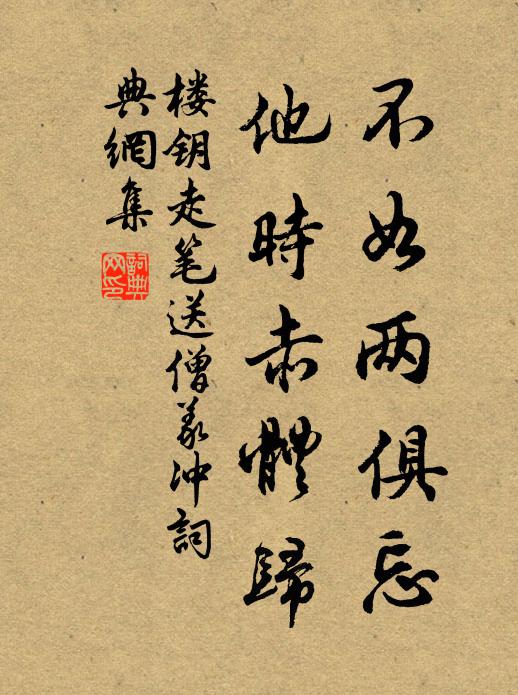 不如两俱忘
他時赤體歸
楼钥走笔送僧义冲詞
典網集
詞典网印